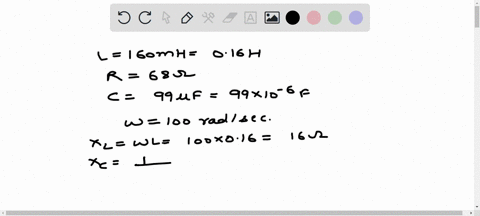 L = 160mH = 0.16H
R = 68Ω
C = 99μF = 99×10⁻⁶ F
W = 100 rad/sec.
XL = WL = 100×0.16 = 16Ω
XC = 1